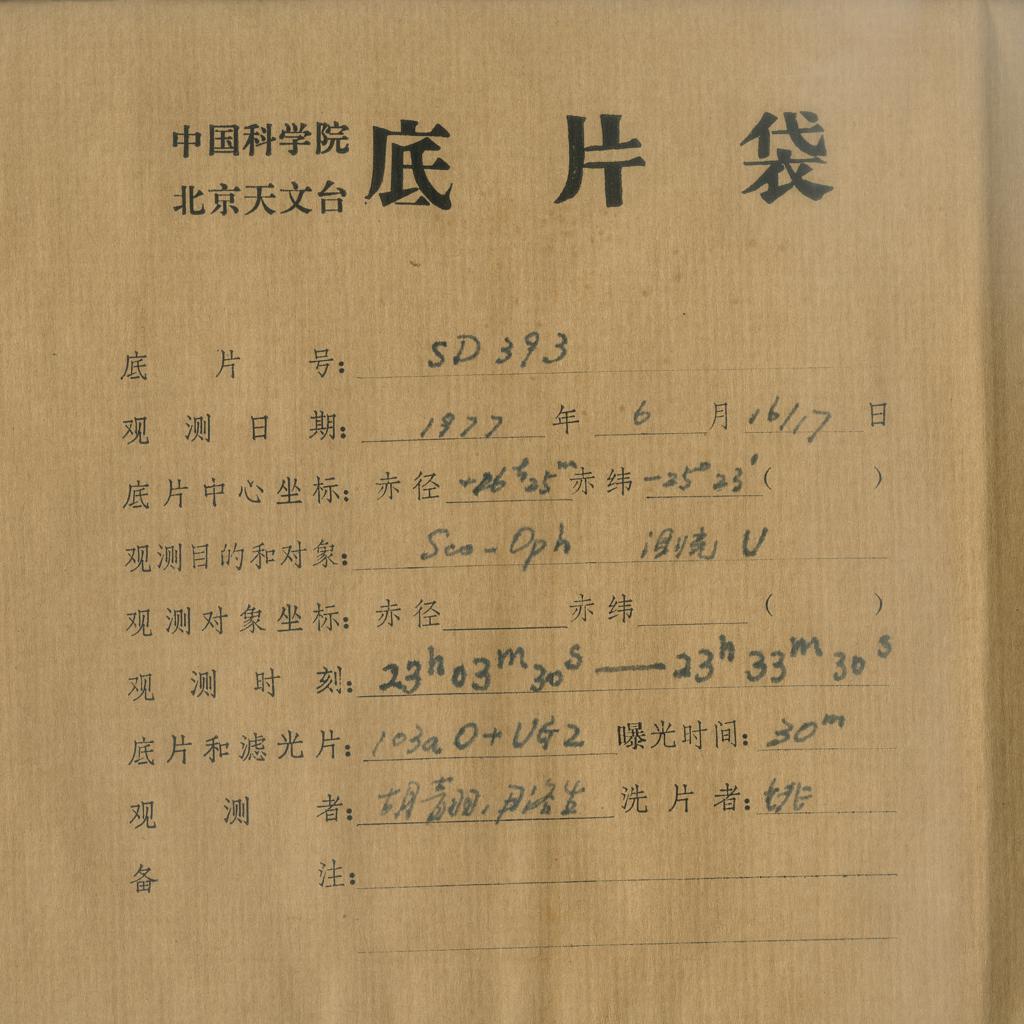 中国科学院
北京天文台
底片袋
底片号: SD 393
观测日期: 1977 年 6 月 16/17 日
底片中心坐标: 赤径 +16h25m 赤纬 -25°23′ ( )
观测目的和对象: Sco-Oph U
观测对象坐标: 赤径 赤纬 ( )
观测时刻: 23h03m30s — 23h33m30s
底片和滤光片: 103aO+UG2 曝光时间: 30m
观测者: 洗片者: 姚
备注: